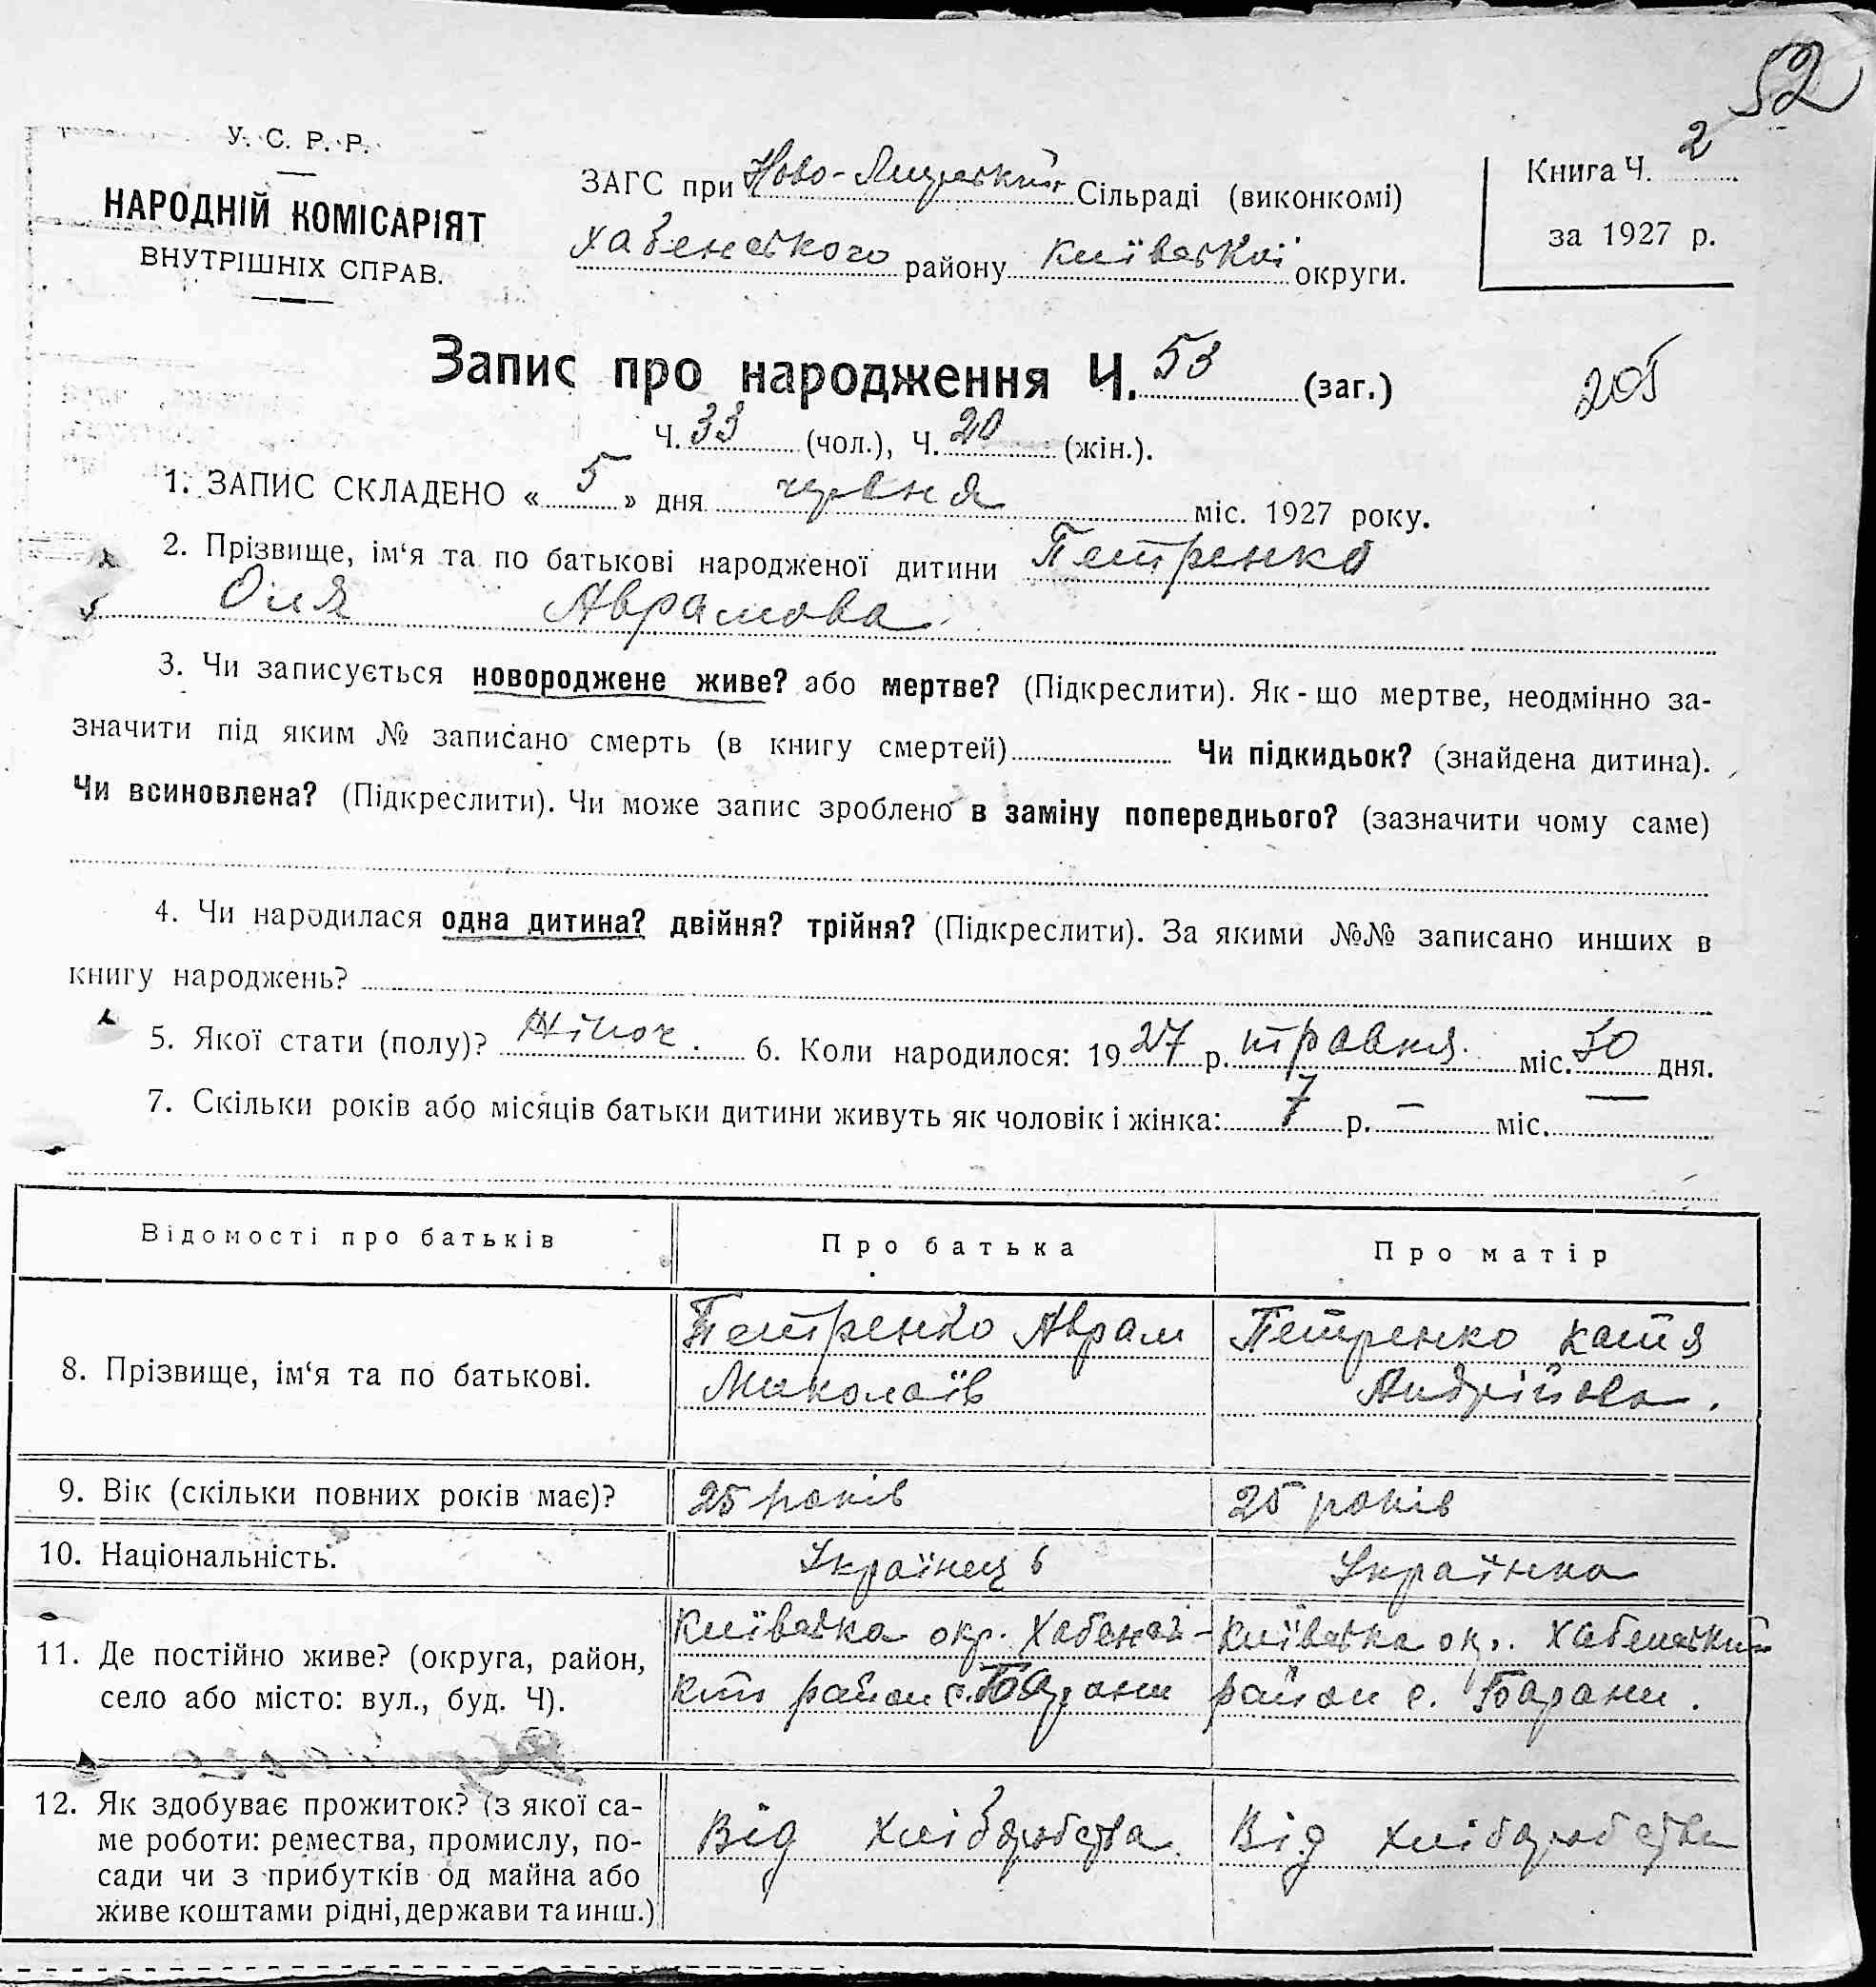 52
У. С. Р. Р.
НАРОДНІЙ КОМІСАРІЯТ
ВНУТРІШНІХ СПРАВ.
ЗАГС при Ново- Сільраді (виконкомі)
Хабенського району Київської округи.
Книга Ч. 2
за 1927 р.
Запис про народження Ч. 53 (заг.)
205
Ч. 33 (чол.), Ч. 20 (жін.).
1. ЗАПИС СКЛАДЕНО « 5 » дня червня міс. 1927 року.
2. Прізвище, ім‘я та по батькові народженої дитини Петренко
Оля Аврамова
3. Чи записується новороджене живе? або мертве? (Підкреслити). Як-що мертве, неодмінно за-
значити під яким № записано смерть (в книгу смертей) Чи підкидьок? (знайдена дитина).
Чи всиновлена? (Підкреслити). Чи може запис зроблено в заміну попереднього? (зазначити чому саме)
4. Чи народилася одна дитина? двійня? трійня? (Підкреслити). За якими №№ записано инших в
книгу народжень?
5. Якої стати (полу)? Жіноч. 6. Коли народилося: 1927 р. травня міс. 30 дня.
7. Скільки років або місяців батьки дитини живуть як чоловік і жінка: 7 р. — міс. —
Відомості про батьків Про батька Про матір
8. Прізвище, ім‘я та по батькові.
Петренко Аврам
Миколаїв
Петренко Катя
Андрійова.
9. Вік (скільки повних років має)? 25 років 25 років
10. Національність. Українець Українка
11. Де постійно живе? (округа, район,
село або місто: вул., буд. Ч).
Київська окр. Хабенсь-
кий район с. Барани
Київська окр. Хабенський
район с. Барани.
12. Як здобуває прожиток? (з якої са-
ме роботи: ремества, промислу, по-
сади чи з прибутків од майна або
живе коштами рідні, держави та инш.)
Від хліборобства
Від хліборобства